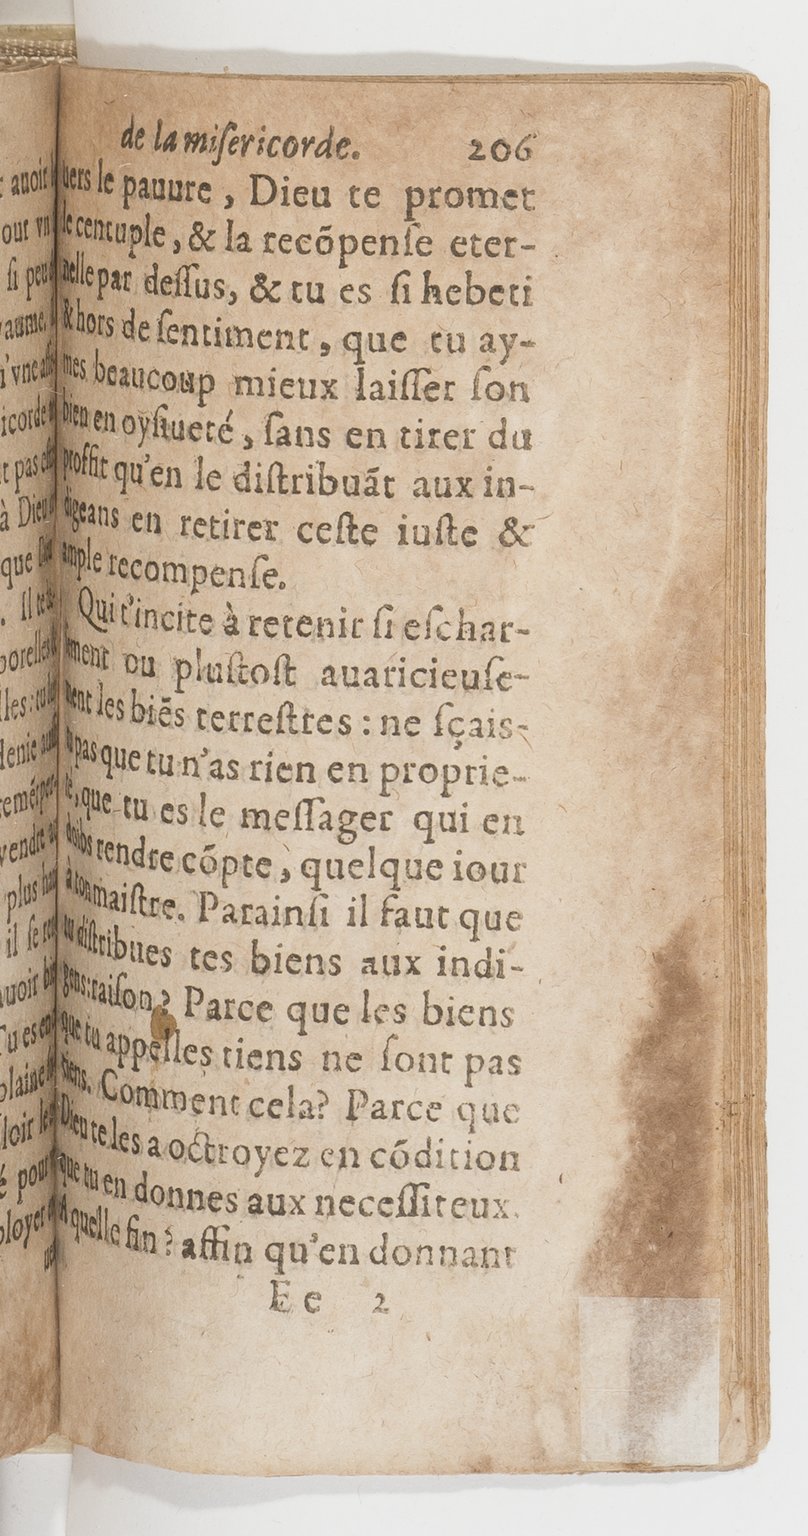 de la miſericorde. 206
uers le pauure, Dieu te promet
le centuple, & la recõpenſe eter-
nelle par deſſus, & tu es ſi hebeti
& hors de ſentiment, que tu ay-
mes beaucoup mieux laiſſer ſon
bien en oyſiueté, ſans en tirer du
proffit qu'en le diſtribuãt aux in-
digeans en retirer ceſte iuſte &
ample recompenſe.
Qui t'incite à retenir ſi eſchar-
ment ou pluſtoſt auaricieuſe-
ment les biẽs terreſtres: ne ſçais-
tu pas que tu n'as rien en proprie-
té, que tu es le meſſager qui en
doibs rendre cõpte, quelque iour
à ton maiſtre. Parainſi il faut que
tu diſtribues tes biens aux indi-
gens: raiſon? Parce que les biens
que tu appelles tiens ne ſont pas
tiens. Comment cela? Parce que
Dieu te les a octroyez en cõdition
que tu en donnes aux neceſſiteux.
A quelle fin? affin qu'en donnant
Ee 2